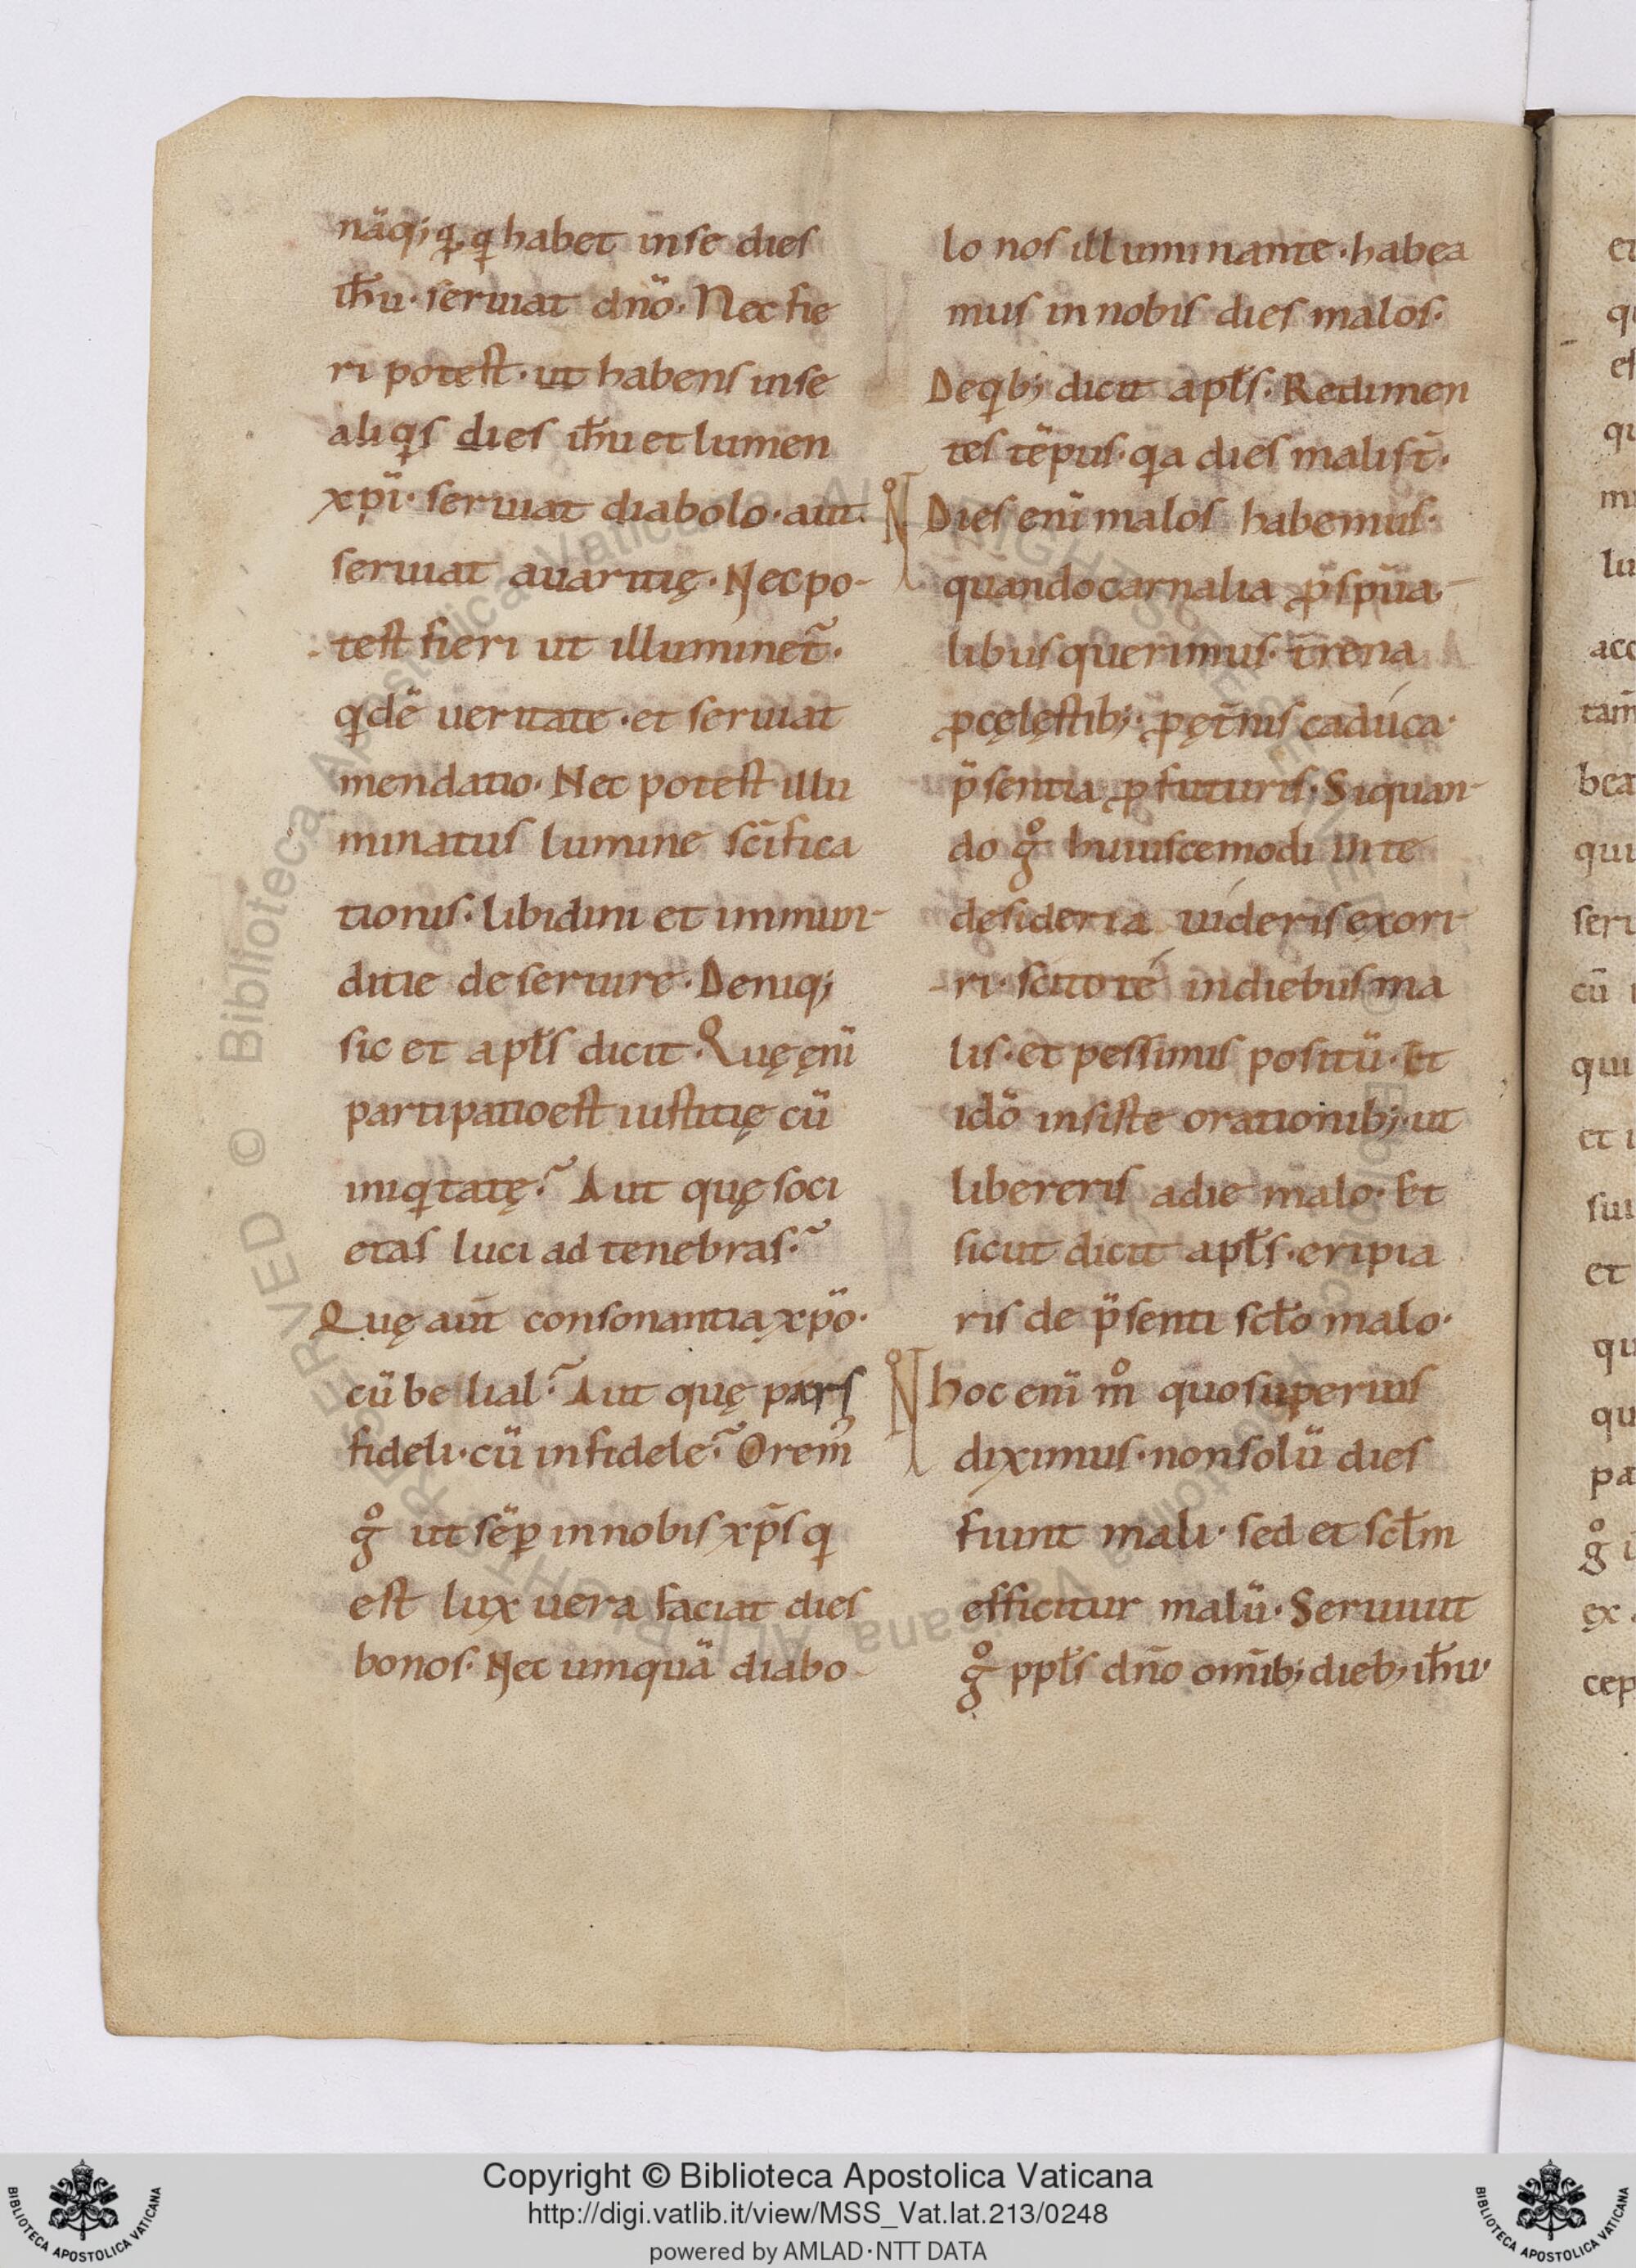 nāq; q̨ q habet in se dies
ih̄u · seruiat dn̄o · Nec fie
ri potest · ut habens in se
aliqs dies ih̄u et lumen
xp̄i · seruiat diabolo · aut
seruiat auaritię · Nec po-
test fieri ut illuminet̄ ·
qdē ueritate · et seruiat
mendatio · Nec potest illu
minatus lumine sc̄ifica
tionis · libidini et immun-
ditie deseruire · Deniq;
sic et apl̄s dicit · Quę enī
partipatio est iustitię cū
iniqtatę · Aut quę soci
etas luci ad tenebras ·
Quę aut̄ consonantia xp̄o ·
cū belial · Aut quę pars
fideli · cū infidele · Orem̄
g° ut sēp in nobis xp̄s q
est lux uera faciat dies
bonos · Nec umquā diabo-
lo nos illuminante · habea
mus in nobis dies malos ·
De qb; dicit apl̄s · Redimen
tes tēpus · qa dies mali st̄ ·
Dies enī malos habemus ·
quando carnalia ꝓ sp̄ua-
libus querimus · t̄rena
ꝓ cęlęstib; · ꝓ ęt̄nis cadúca ·
p̄sentia ꝓ futuris · Si quan-
do g° huiuscemodi in te
desideria uideris exori-
ri · scito té in diebus ma
lis · et pessimis positū · Et
idō insiste orationib; · ut
libereris a die malo · Et
sicut dicit apl̄s · eripia
ris de p̄senti scl̄o malo ·
Hoc enī m° quo superius
diximus · non solū dies
fiunt mali · sed et scl̄m
efficitur malū · Seruiuit
g° ppl̄s dn̄o om̄ib; dieb; ih̄u ·
Copyright © Biblioteca Apostolica Vaticana
http://digi.vatlib.it/view/MSS_Vat.lat.213/0248
powered by AMLAD·NTT DATA
BIBLIOTECA APOSTOLICA VATICANA
BIBLIOTECA APOSTOLICA VATICANA